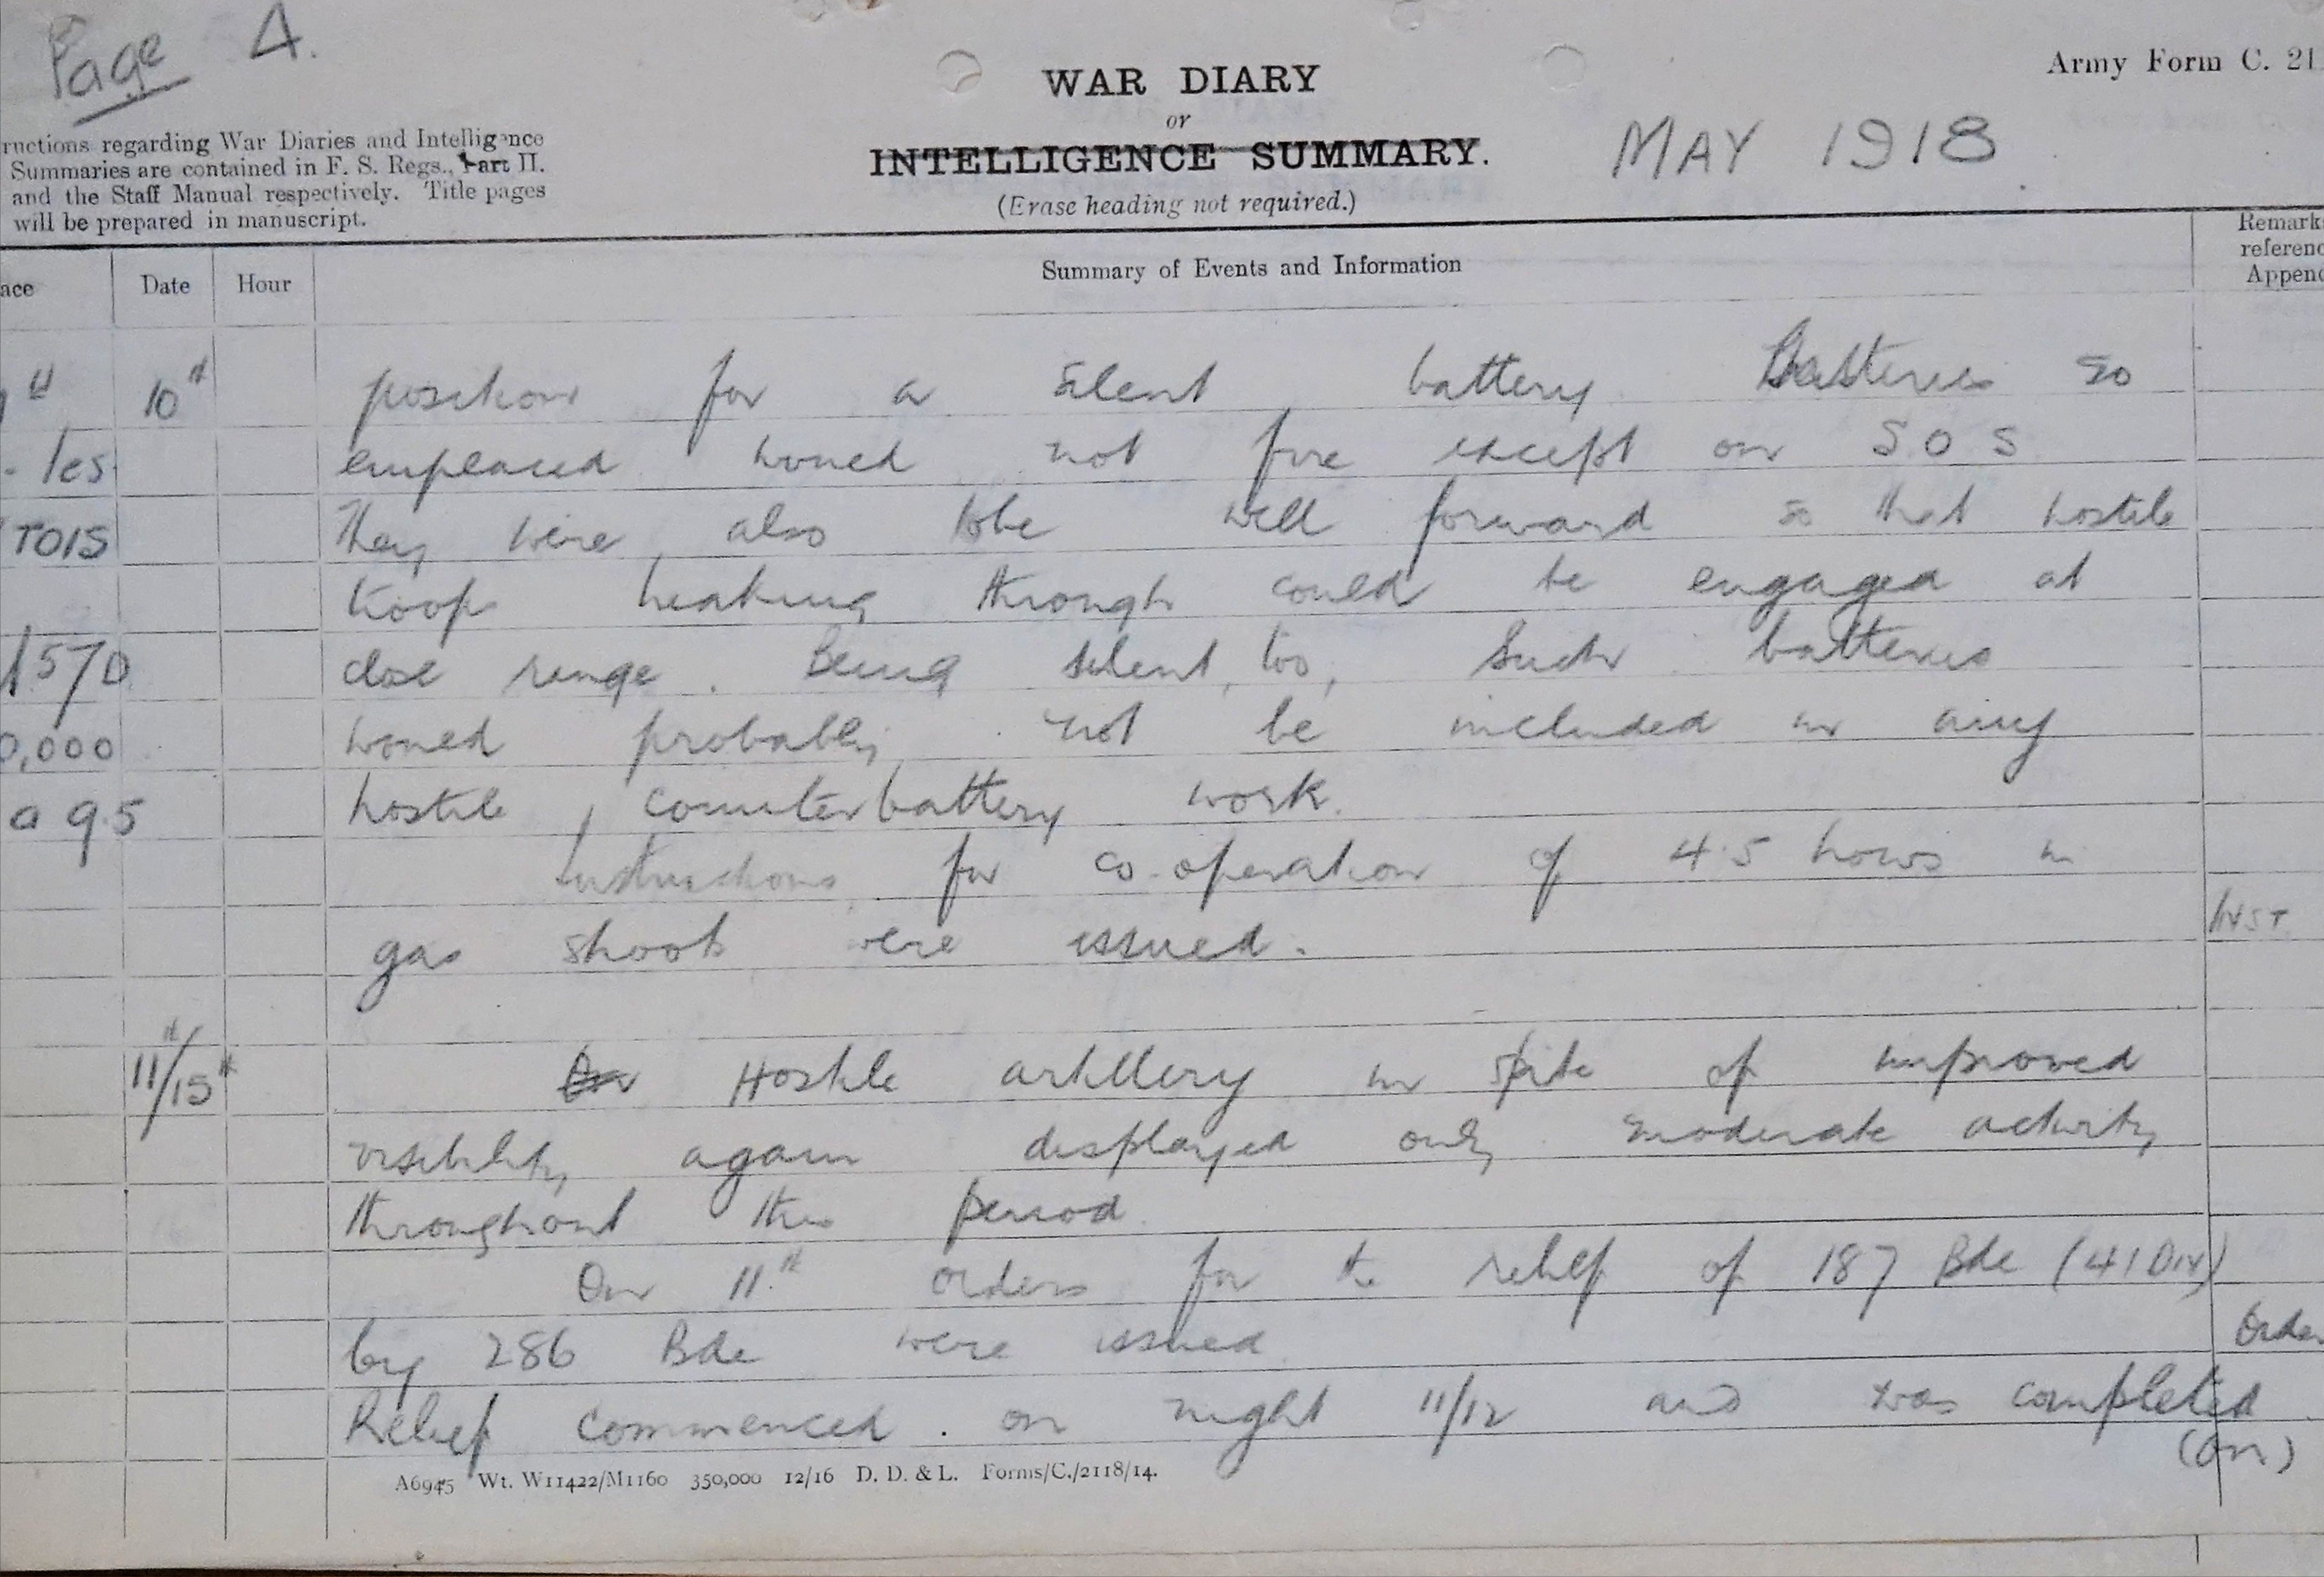 Page 4.
WAR DIARY
or
INTELLIGENCE SUMMARY.
(Erase heading not required.)
Army Form C. 21
MAY 1918.
ructions regarding War Diaries and Intelligence
Summaries are contained in F. S. Regs., Part II.
and the Staff Manual respectively. Title pages
will be prepared in manuscript.
ace Date Hour Summary of Events and Information Remarks
referenc
Appen
10th position for a silent battery Batteries so
les emplaced would not fire except on S.O.S
TOIS They were also to be well forward so that hostile
troops breaking through could be engaged at
57D close range. Being silent, too, such batteries
0,000 would probably not be included in any
a 9.5 hostile counter battery work.
Instructions for co-operation of 4.5 hows in
gas shoots were issued. INST
11th/15th On Hostile artillery in spite of improved
visibility again displayed only moderate activity
throughout this period.
On 11th orders for the relief of 187 Bde (41 Div)
by 286 Bde were issued Order
Relief commenced on night 11/12 and was completed
(on)
A6945 Wt. W11422/M1160 350,000 12/16 D. D. & L. Forms/C./2118/14.